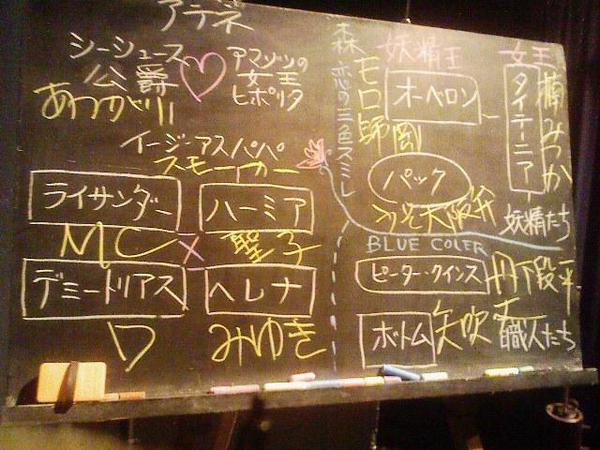 アテネ
シーシュース
公爵
アマゾンの
女王
ヒポリタ
イージーアスパパ
スモーカー
ライサンダー
ハーミア
MC
×
聖子
デミートリアス
ヘレナ
ワ
みゆき
森
恋の三色スミレ
妖精王
オーベロン
モロ師岡
女王
タイテーニア
楠みつか
パック
妖精たち
BLUE COLER
ピーター・クインス
丹下段平
ボトム
矢吹
職人たち